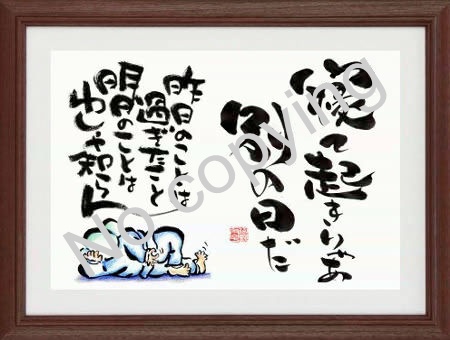 寝て起きりゃあ
別の日だ
昨日のことは
過ぎたこと
明日のことは
わしゃ知らん
No copying